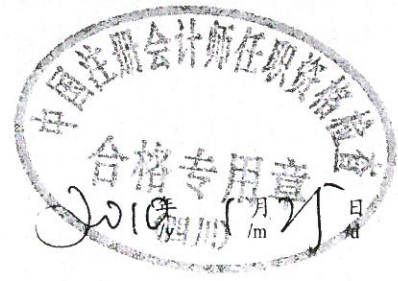 中国注册会计师任职资格检查
合格专用章
2010年 1月25日
/y /m /d
(四川)